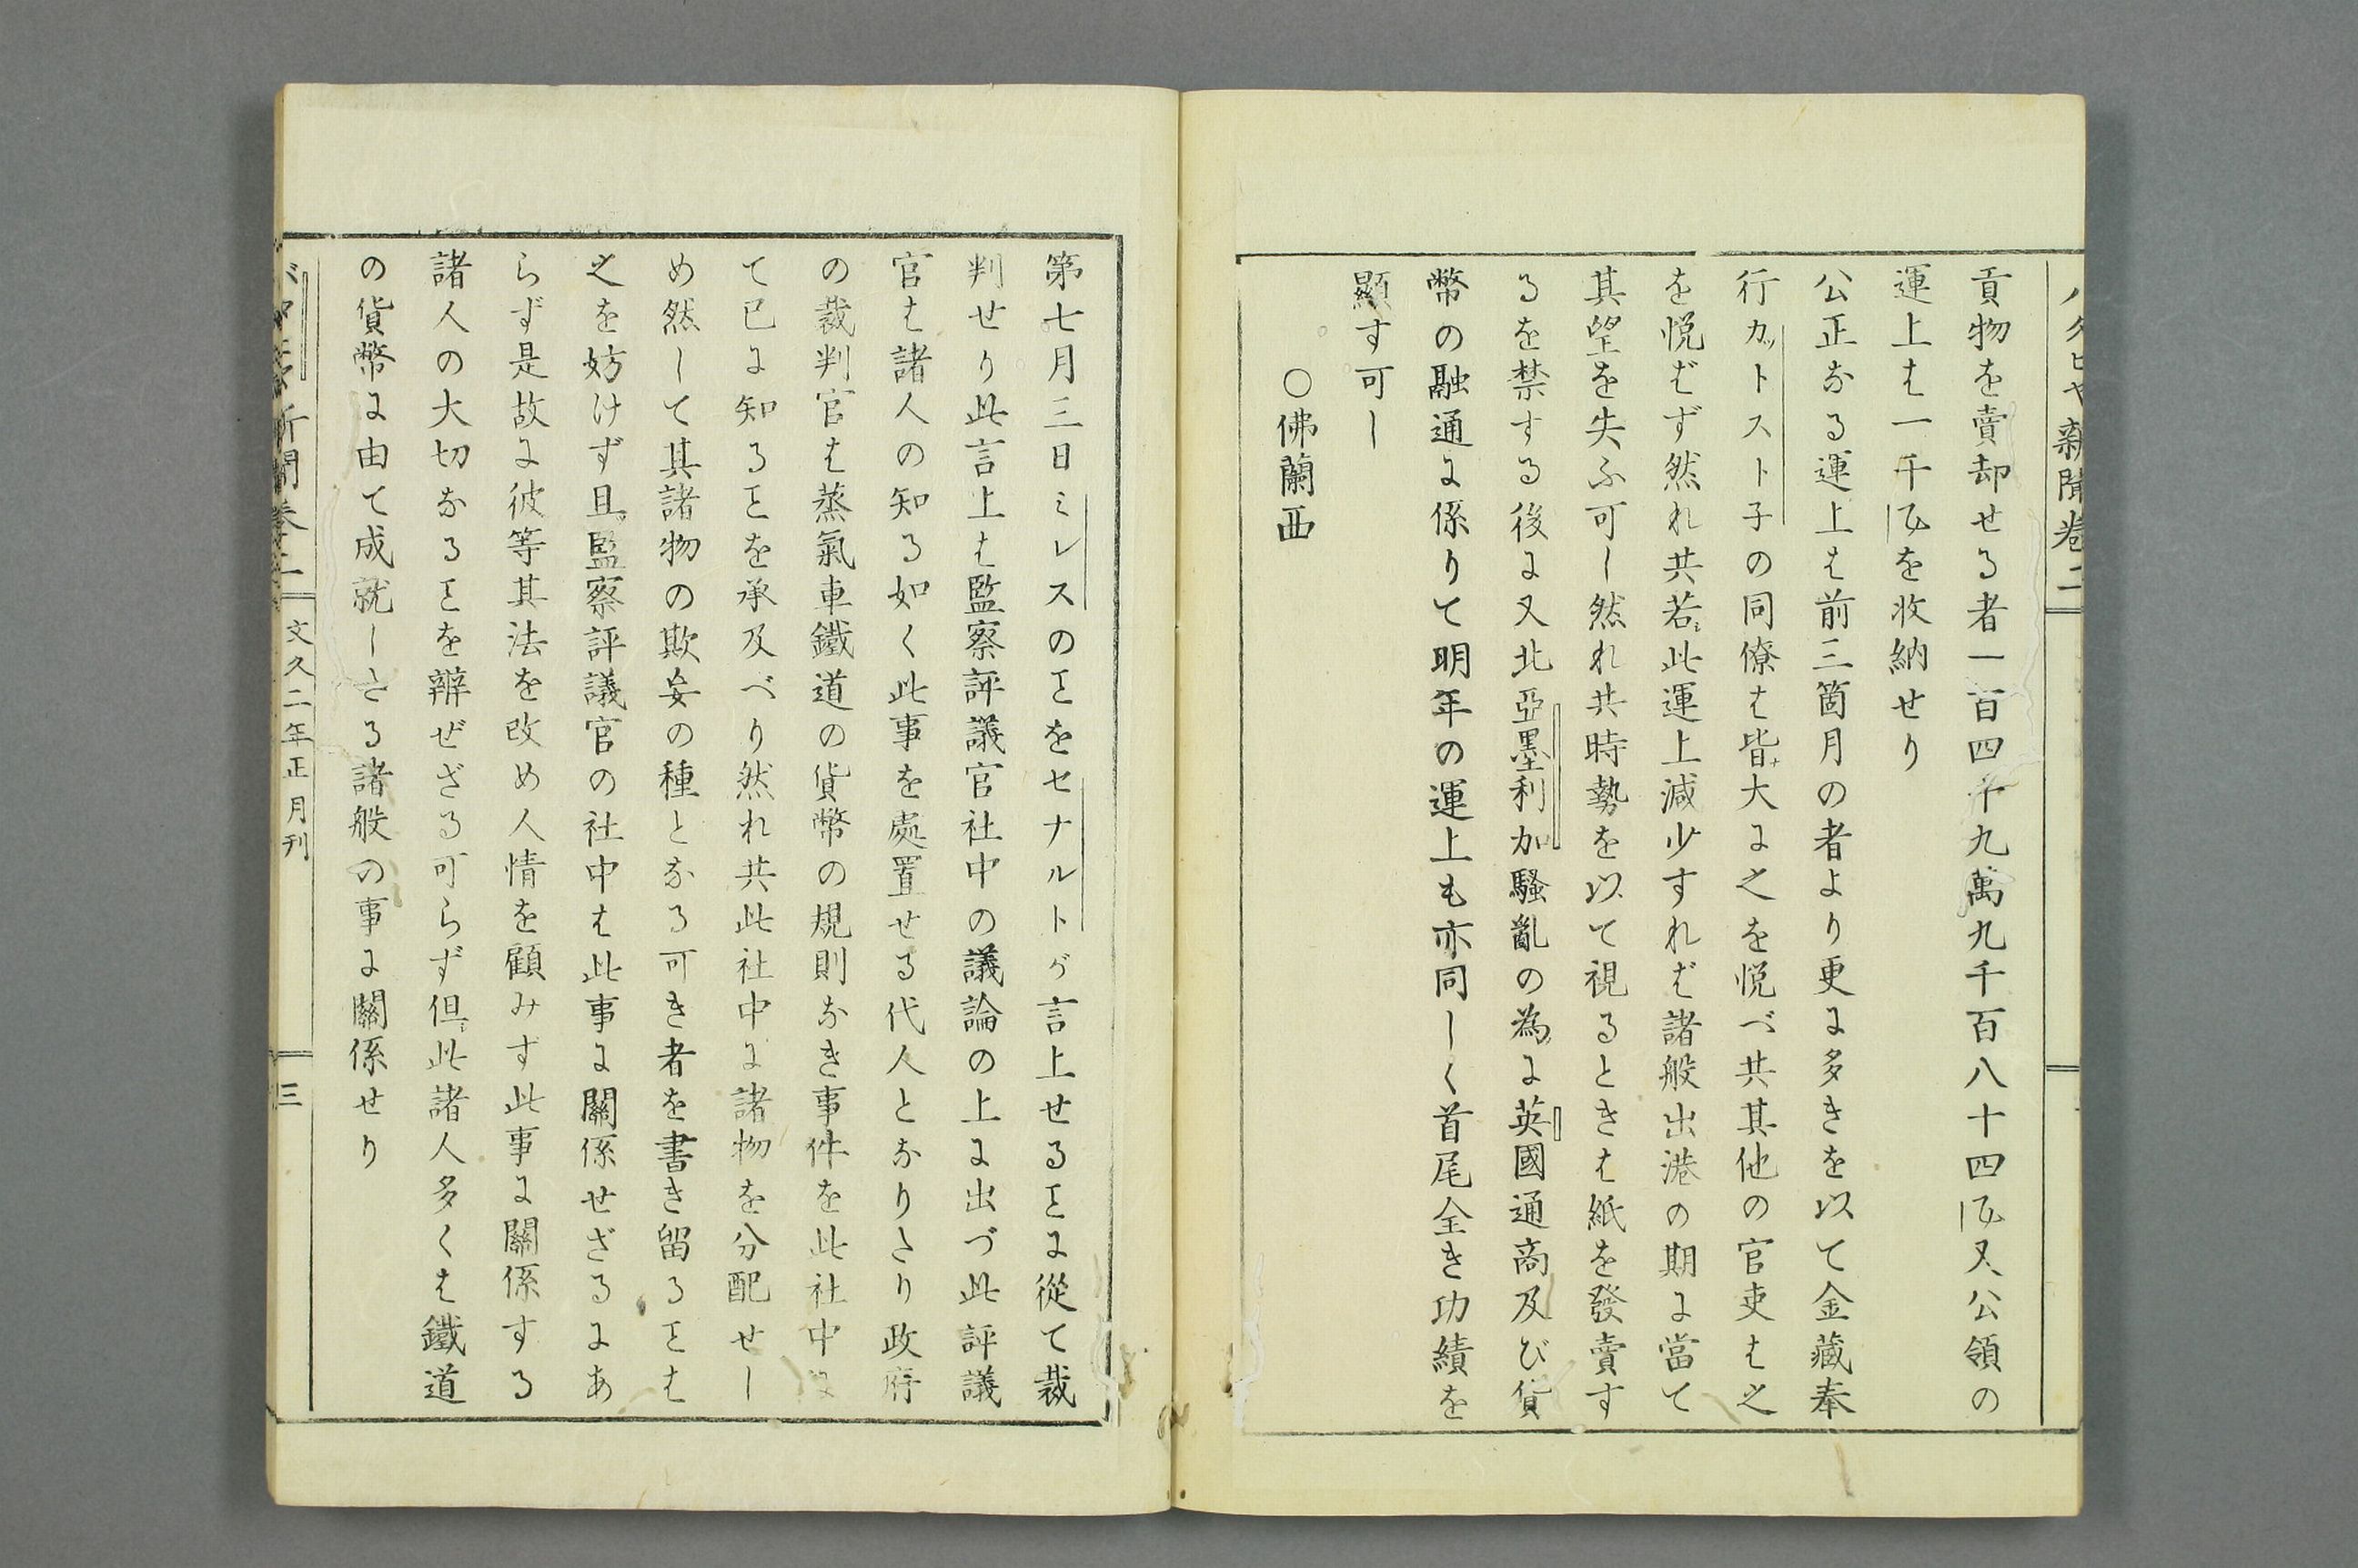 新聞巻二
貢物を賣却せる者一百四十九萬九千百八十四又公領の
運上は一千を收納せり
公正なる運上は前三箇月の者より更に多きを以て金藏奉
行カットスト子の同僚は皆大に之を悦べ共其他の官吏は之
を悦ばず然れ共若此運上減少すれば諸般出港の期に當て
其望を失ふ可し然れ共時勢を以て視るときは紙を發賣す
るを禁する後に又北亞墨利加騷亂の為に英國通商及び貨
幣の融通に係りて明年の運上も亦同しく首尾全き功績を
顯す可し
○佛蘭西
第七月三日ミレスのヿをセナルトガ言上せるヿに從て裁
判せり此言上は監察評議官社中の議論の上に出づ此評議
官は諸人の知る如く此事を處置せる代人となりたり政府
の裁判官は蒸氣車鐵道の貨幣の規則なき事件を此社中に
て已に知るヿを承及べり然れ共此社中に諸物を分配せし
め然して其諸物の欺妄の種となる可き者を書き留るヿは
之を妨けず且監察評議官の社中は此事に關係せざるにあ
らず是故に彼等其法を改め人情を顧みす此事に關係する
諸人の大切なるヿを辨ぜざる可らず但此諸人多くは鐵道
の貨幣に由て成就したる諸般の事に關係せり
新聞巻二 文久二年正月刊 三